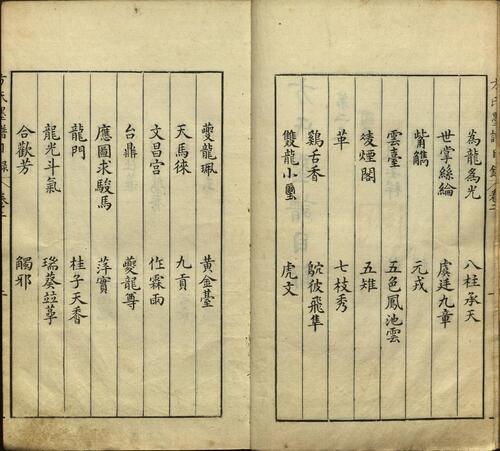 方氏墨譜目錄 卷二
為龍為光 八柱承天
世掌絲綸 虞廷九章
觜觿 元戎
雲臺 五色鳳池雲
凌煙閣 五雉
革 七枝秀
雞舌香 鴥彼飛隼
雙龍小璽 虎文
夔龍珮 黃金臺
天馬徠 九貢
文昌宮 作霖雨
台鼎 夔龍尊
應圖求駿馬 萍實
龍門 桂子天香
龍光斗氣 瑞葵竝
合歡芳 觸邪
方氏墨譜目錄 卷二